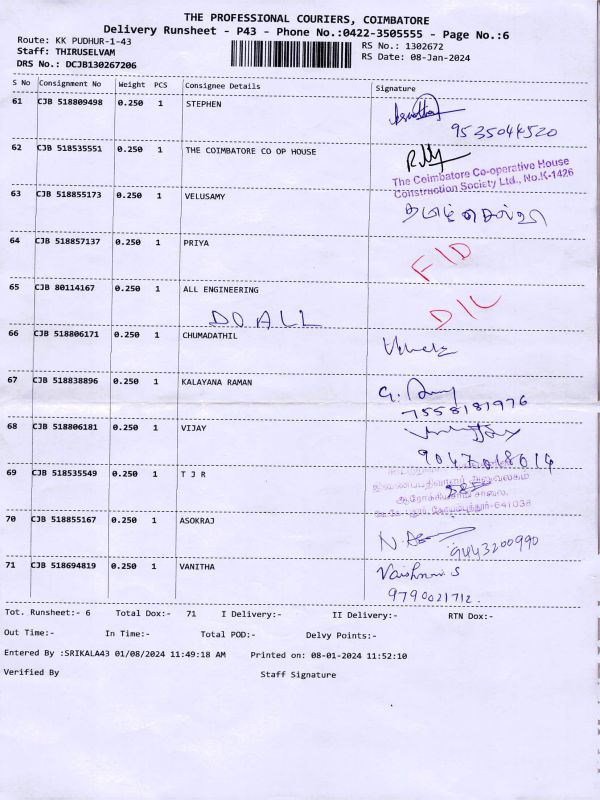 THE PROFESSIONAL COURIERS, COIMBATORE
Delivery Runsheet - P43 - Phone No.:0422-3505555 - Page No.:6
Route: KK PUDHUR-1-43
RS No.: 1302672
Staff: THIRUSELVAM
RS Date: 08-Jan-2024
DRS No.: DCJB130267206
S No Consignment No Weight PCS Consignee Details Signature
61 CJB 518809498 0.250 1 STEPHEN
9535044520
62 CJB 518535551 0.250 1 THE COIMBATORE CO OP HOUSE
The Coimbatore Co-operative House
Construction Society Ltd., No.K-1426
63 CJB 518855173 0.250 1 VELUSAMY
64 CJB 518857137 0.250 1 PRIYA
65 CJB 80114167 0.250 1 ALL ENGINEERING
DO ALL
66 CJB 518806171 0.250 1 CHUMADATHIL
67 CJB 518838896 0.250 1 KALAYANA RAMAN
7558181976
68 CJB 518806181 0.250 1 VIJAY
69 CJB 518535549 0.250 1 T J R
70 CJB 518855167 0.250 1 ASOKRAJ
9443200990
71 CJB 518694819 0.250 1 VANITHA
Vaishnavi. S
9790021712.
Tot. Runsheet:- 6 Total Dox:- 71 I Delivery:- II Delivery:- RTN Dox:-
Out Time:- In Time:- Total POD:- Delvy Points:-
Entered By :SRIKALA43 01/08/2024 11:49:18 AM Printed on: 08-01-2024 11:52:10
Verified By Staff Signature